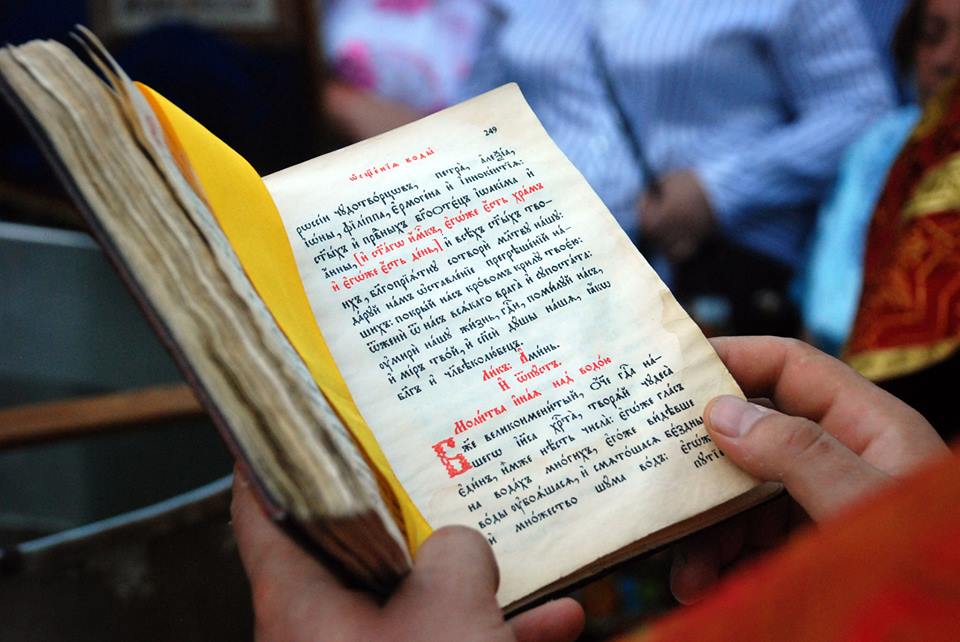 249
ѡ҆сщ҃е́нїѧ воды̀
рѡссі́и чꙋдотво́рцєвъ, петра̀, а҆леѯі́а,
і҆ѡ́ны, фїлі́ппа, є҆рмоге́на и҆ і҆нноке́нтїа:
ст҃ы́хъ и҆ прв҇ныхъ бг҃оѻтє́цъ і҆ѡакі́ма и҆
а҆́нны, [и҆ ст҃а́гѡ и҆́м҃къ, є҆гѡ́же є҆́сть хра́мъ
и҆ є҆гѡ́же є҆́сть де́нь,] и҆ всѣ́хъ ст҃ы́хъ тво-
и́хъ, бл҃гопрїѧ́тнꙋ сотворѝ мл҃твꙋ на́шꙋ:
да́рꙋй на́мъ ѡ҆ставле́нїе прегрѣше́нїй на́-
шихъ: покры́й на́съ кро́вомъ крилꙋ̀ твоє́ю:
ѿженѝ ѿ на́съ всѧ́каго врага̀ и҆ сꙋпоста́та
ᲂу҆мирѝ на́шꙋ жи́знь, гдⷭ҇и, поми́лꙋй на́съ,
и҆ мі́ръ тво́й, и҆ сп҃сѝ дꙋ́шы на́шѧ, ꙗ҆́кѡ
бл҃гъ и҆ чл҃вѣколю́бецъ.
Ли́къ: А҆ми́нь.
И҆ ѿпꙋ́стъ.
Моли́тва и҆на́ѧ над водо́ю
Бж҃е великоимени́тый, ѻ҆́ч҃е гдⷭ҇а на́-
шегѡ і҆и҃са хрⷭ҇та̀, творѧ́й чꙋдеса̀
є҆ди́нъ, и҆̀мже нѣ́сть числа̀: є҆гѡ́же гла́съ
на вода́хъ мно́гихъ, є҆го́же ви́дѣвше
во́ды ᲂу҆боѧ́шасѧ, и҆ смѧто́шасѧ бє́здны
и҆ мно́жество шꙋ́ма во́дъ: є҆гѡ́же
пꙋтїѐ